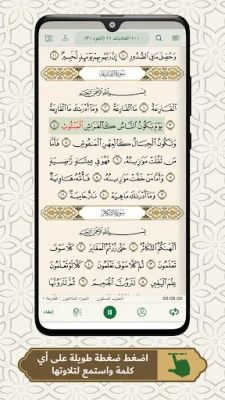 ١٠٠-العاديات ١١ (الجزء ٣٠)
وَحُصِّلَ مَا فِي ٱلصُّدُورِ ۝ إِنَّ رَبَّهُم بِهِمْ يَوْمَئِذٍ لَّخَبِيرٌۢ ۝
سورة القارعة
بِسْمِ ٱللَّهِ ٱلرَّحْمَٰنِ ٱلرَّحِيمِ
ٱلْقَارِعَةُ ۝ مَا ٱلْقَارِعَةُ ۝ وَمَآ أَدْرَىٰكَ مَا ٱلْقَارِعَةُ ۝
يَوْمَ يَكُونُ ٱلنَّاسُ كَٱلْفَرَاشِ ٱلْمَبْثُوثِ ۝
وَتَكُونُ ٱلْجِبَالُ كَٱلْعِهْنِ ٱلْمَنفُوشِ ۝ فَأَمَّا
مَن ثَقُلَتْ مَوَٰزِينُهُۥ ۝ فَهُوَ فِي عِيشَةٍ رَّاضِيَةٍ
۝ وَأَمَّا مَنْ خَفَّتْ مَوَٰزِينُهُۥ ۝ فَأُمُّهُۥ هَاوِيَةٌ
۝ وَمَآ أَدْرَىٰكَ مَا هِيَهْ ۝ نَارٌ حَامِيَةٌۢ ۝
سورة التكاثر
بِسْمِ ٱللَّهِ ٱلرَّحْمَٰنِ ٱلرَّحِيمِ
أَلْهَىٰكُمُ ٱلتَّكَاثُرُ ۝ حَتَّىٰ زُرْتُمُ ٱلْمَقَابِرَ ۝ كَلَّا سَوْفَ
تَعْلَمُونَ ۝ ثُمَّ كَلَّا سَوْفَ تَعْلَمُونَ ۝ كَلَّا لَوْ تَعْلَمُونَ
عِلْمَ ٱلْيَقِينِ ۝ لَتَرَوُنَّ ٱلْجَحِيمَ ۝ ثُمَّ لَتَرَوُنَّهَا
إنهاء
اضغط ضغطة طويلة على أي
كلمة واستمع لتلاوتها